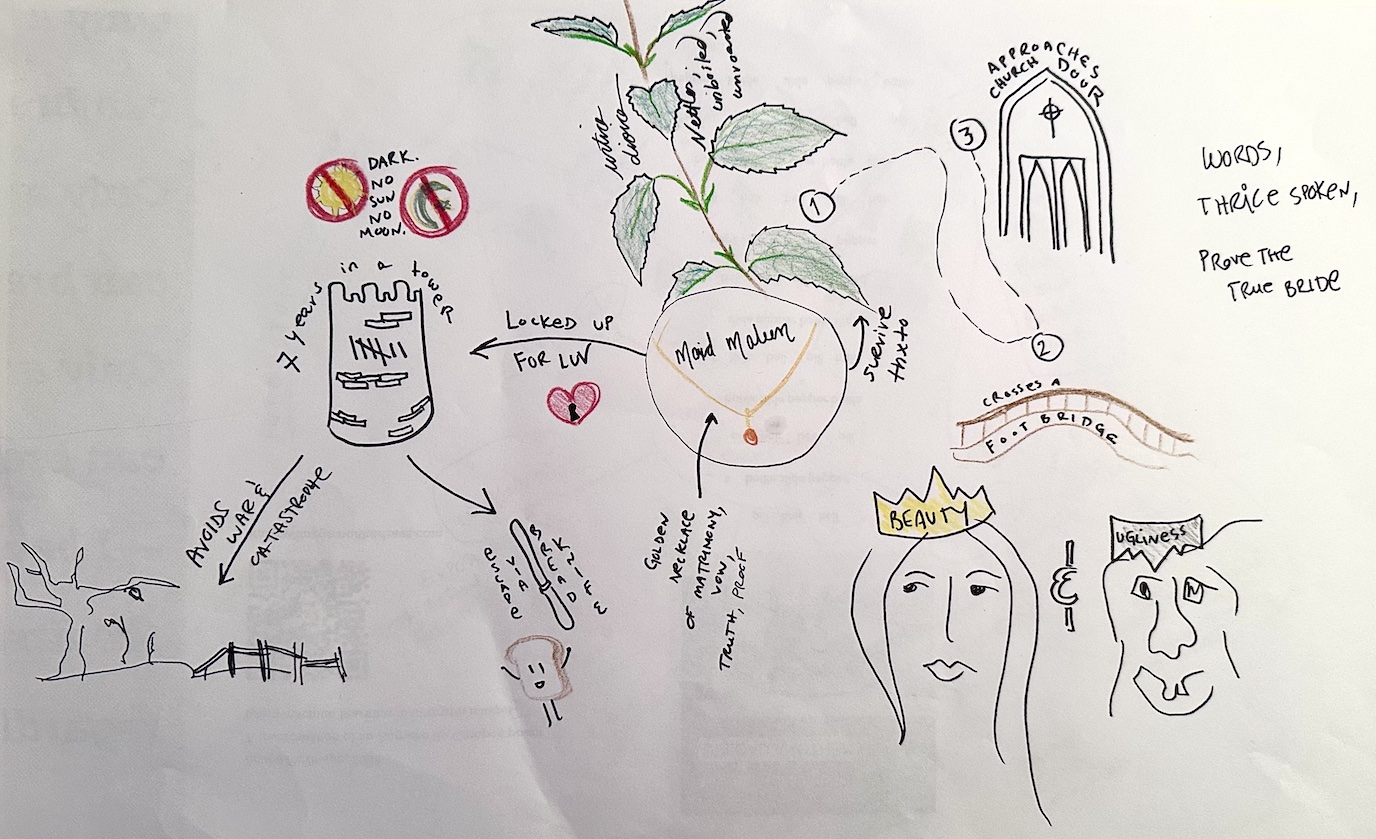 APPROACHES
CHURCH DOOR
urtica
dioica
Nettles,
unboiled,
unroasted
3
1
2
WORDS,
THRICE SPOKEN,
PROVE THE
TRUE BRIDE
DARK.
NO
SUN
NO
MOON.
7 years in a tower
LOCKED UP
FOR LUV
Maid Maleen
survive
thx to
CROSSES A
FOOT BRIDGE
AVOIDS
WAR &
CATASTROPHE
ESCAPE
VIA
BREAD
KNIFE
GOLDEN
NECKLACE
OF MATRIMONY,
VOW,
TRUTH, PROOF
BEAUTY
&
UGLINESS